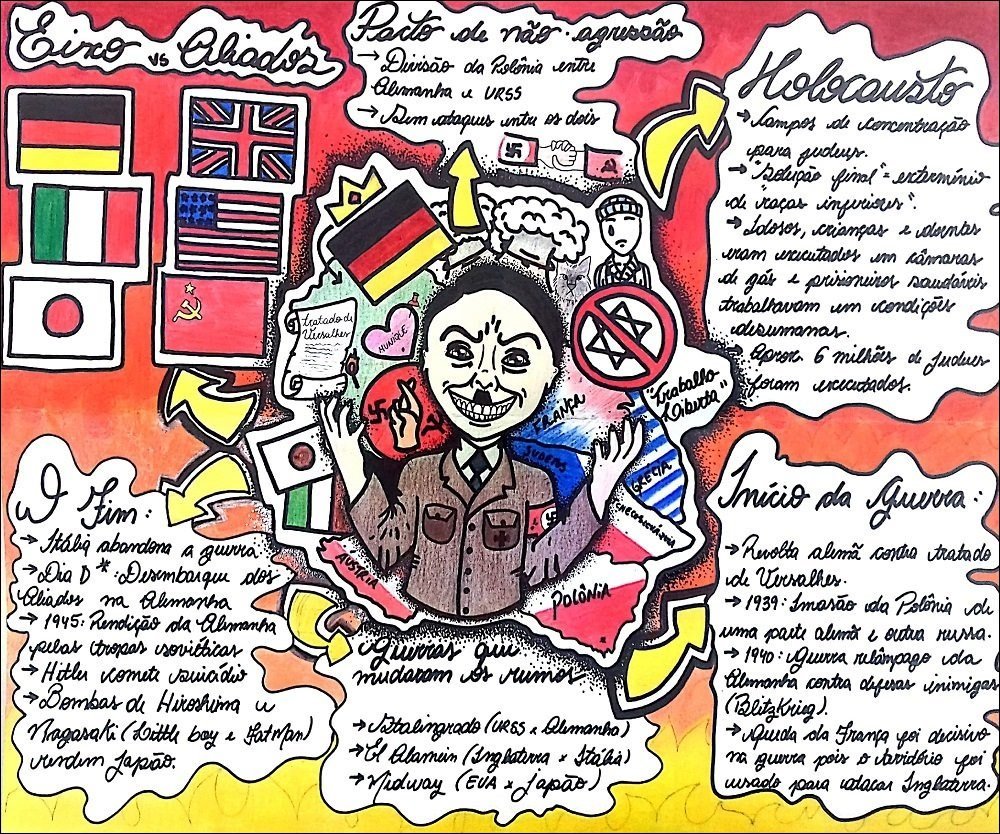 Eixo vs Aliados
Pacto de não-agressão
→ Divisão da Polônia entre
Alemanha e URSS
→ Sem ataques entre os dois
Holocausto
→ Campos de concentração
para judeus.
→ "Solução final" = extermínio
de "raças inferiores".
→ Idosos, crianças e doentes
eram executados em câmaras
de gás e prisioneiros saudáveis
trabalhavam em condições
desumanas.
→ Aprox. 6 milhões de judeus
foram executados.
Tratado de
Versalhes
MUNIQUE
"Trabalho
Liberta"
FRANÇA
SUDETOS
GRÉCIA
ÁUSTRIA
POLÔNIA
O Fim:
→ Itália abandona a guerra
→ Dia D*: Desembarque dos
Aliados na Alemanha
→ 1945: Rendição da Alemanha
pelas tropas soviéticas
→ Hitler comete suicídio
→ Bombas de Hiroshima e
Nagasaki (Little boy e Fat Man)
rendem Japão.
Guerras que
mudaram os rumos
→ Stalingrado (URSS x Alemanha)
→ El Alamein (Inglaterra x Itália)
→ Midway (EUA x Japão)
Início da Guerra:
→ Revolta alemã contra tratado
de Versalhes.
→ 1939: Invasão da Polônia de
uma parte alemã e outra russa.
→ 1940: Guerra relâmpago da
Alemanha contra defesas inimigas
(BlitzKrieg).
→ Queda da França foi decisivo
na guerra pois o território foi
usado para atacar Inglaterra.